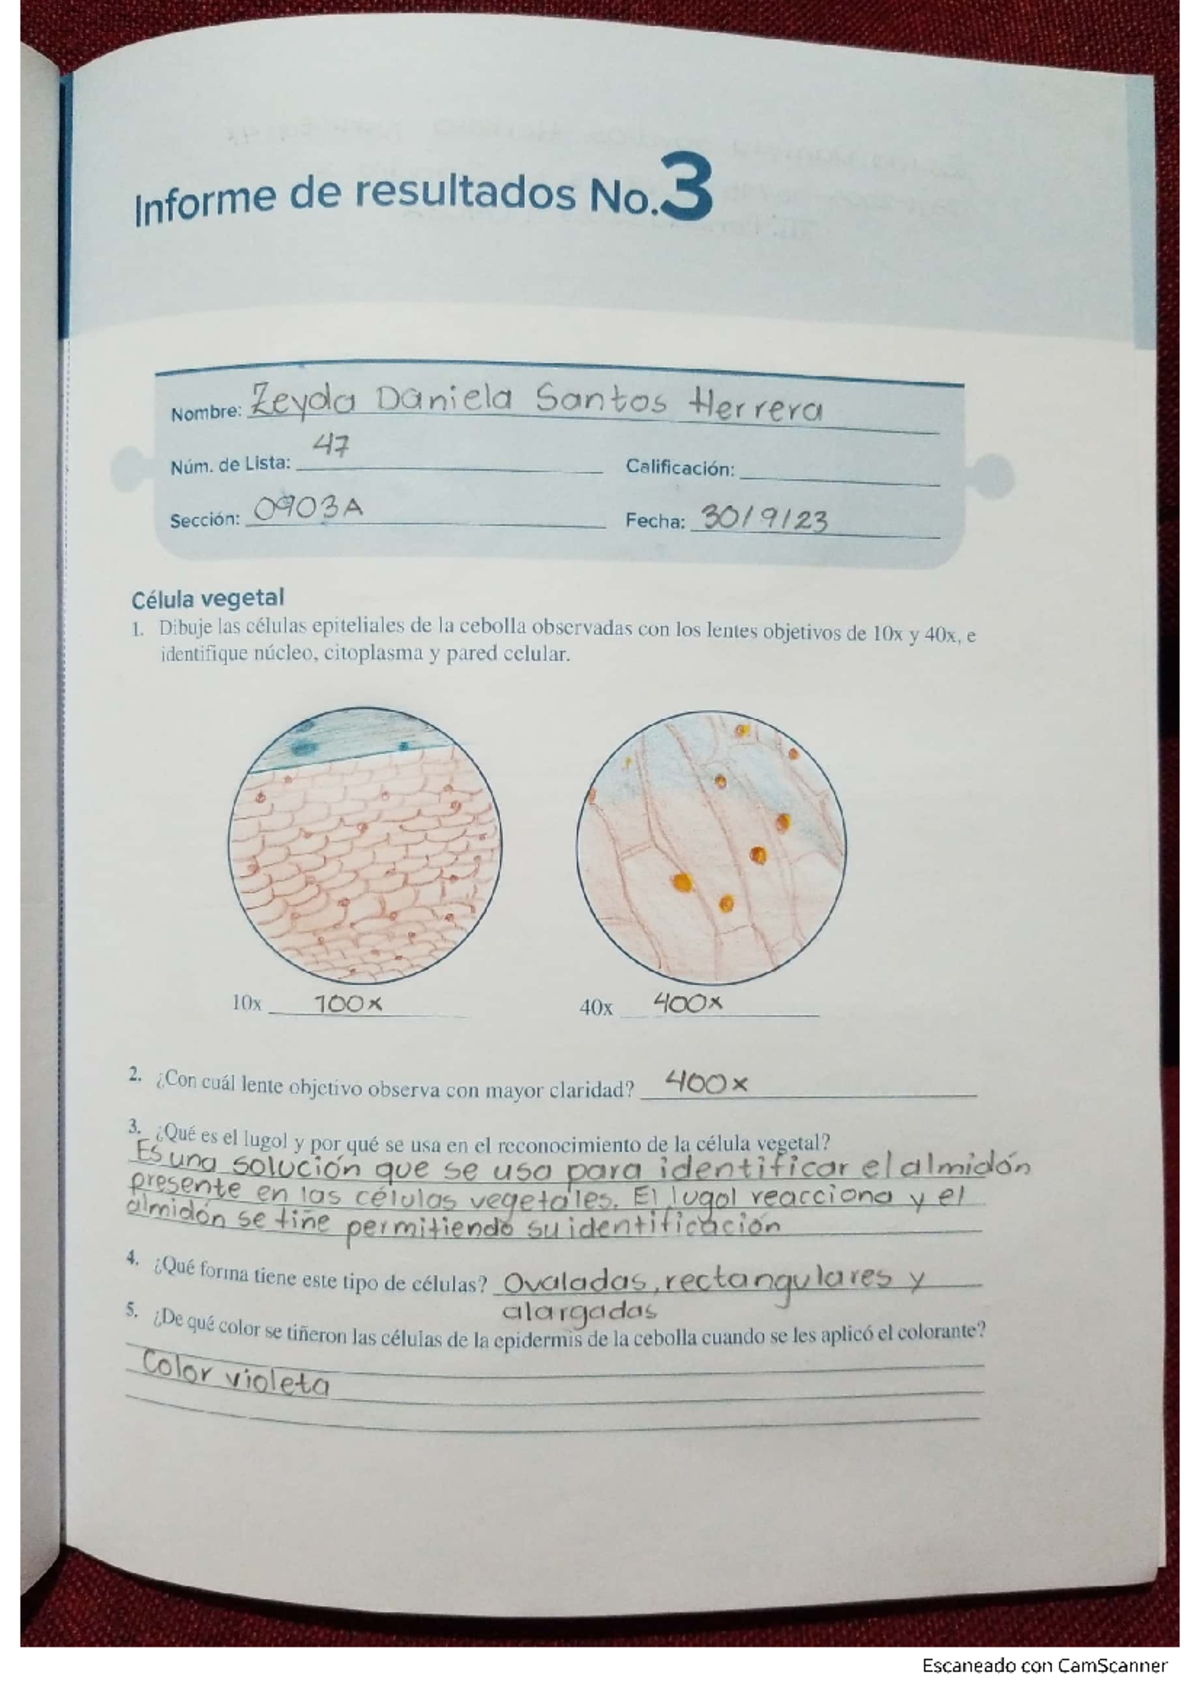 Informe de resultados No.3
Nombre: Zeyda Daniela Santos Herrera
Núm. de Lista: 47
Calificación:
Sección: 0903A
Fecha: 30/9/23
Célula vegetal
1. Dibuje las células epiteliales de la cebolla observadas con los lentes objetivos de 10x y 40x, e
identifique núcleo, citoplasma y pared celular.
10x 100x
40x 400x
2. ¿Con cuál lente objetivo observa con mayor claridad? 400x
3. ¿Qué es el lugol y por qué se usa en el reconocimiento de la célula vegetal?
Es una solución que se usa para identificar el almidón
presente en las células vegetales. El lugol reacciona y el
almidón se tiñe permitiendo su identificación
4. ¿Qué forma tiene este tipo de células? Ovaladas, rectangulares y
alargadas
5. ¿De qué color se tiñeron las células de la epidermis de la cebolla cuando se les aplicó el colorante?
Color violeta
Escaneado con CamScanner